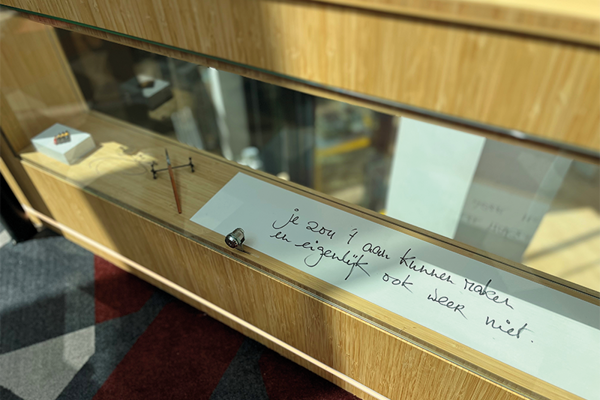 je zou 't aan kunnen raken
en eigenlijk ook weer niet.